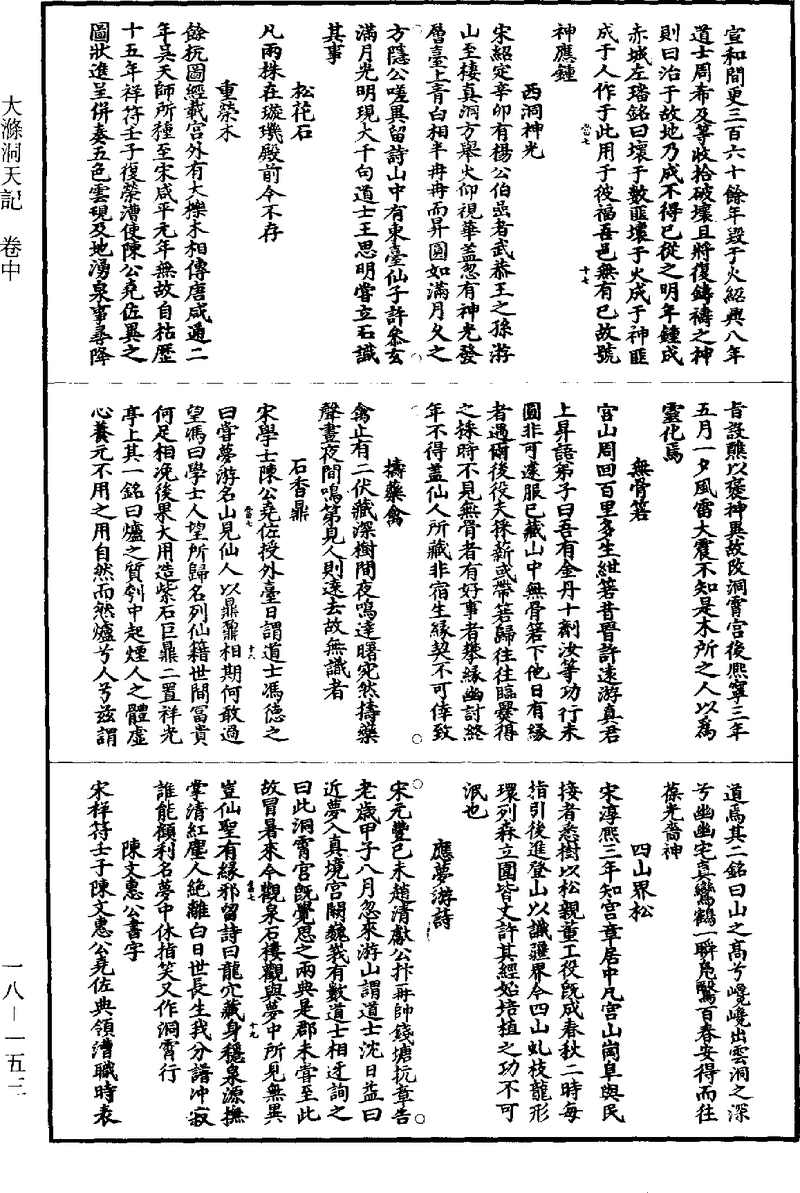 宣和間更三百六十餘年毀于火紹興八年
道士周希及等收拾破壞且將復鑄禱之神
則曰治于故地乃成不得已從之明年鍾成
赤城左璠銘曰壞于數匪壞于火成于神匪
成于人作于此用于彼福吾邑無有已故號
神應鍾
西洞神光
宋紹定辛卯有楊公伯嵒者武恭王之孫游
山至棲真洞方舉火仰視華蓋忽有神光發
層臺上青白相半冉冉而昇圓如滿月久之
方隱公嗟異留詩山中有東臺仙子許叅玄
滿月光明現大千句道士王思明嘗立石識
其事
松花石
凡兩株在璇璣殿前今不存
重榮木
餘杭圖經載宮外有大櫟木相傳唐咸通二
年吳天師所種至宋咸平元年無故自枯歷
十五年祥符壬子復榮漕使陳公堯佐異之
圖狀進呈併奏五色雲現及地湧泉事尋降
旨設醮以褒神異故改洞霄宮後熙寧三年
五月一夕風雷大震不知是木所之人以爲
靈化焉
無骨箬
宮山周回百里多生紺箬昔晉許遠游真君
上昇語弟子曰吾有金丹十劑汝等功行未
圓非可遽服已藏山中無骨箬下他日有緣
者遇爾後役夫採薪或帶箬歸往往臨爨得
之採時不見無骨者有好事者攀緣幽討終
年不得蓋仙人所藏非宿生緣契不可倖致
擣藥禽
禽止有二伏藏深樹間夜鳴達曙宛然擣藥
聲晝夜間鳴第見人則遠去故無識者
石香鼎
宋學士陳公堯佐授外臺日謂道士馮德之
曰嘗夢游名山見仙人以鼎鼐相期何敢過
望馮曰學士人望所歸名列仙籍世間富貴
何足相浼後果大用造紫石巨鼎二置祥光
亭上其一銘曰爐之質刳中起煙人之體虛
心養元不用之用自然而然爐兮人兮茲謂
道焉其二銘曰山之高兮巉巉出雲洞之深
兮幽幽宅真鸞鶴一瞬鳧鷖百春安得而往
葆光嗇神
四山界松
宋淳熙三年知宮章居中凡宮山崗阜與民
接者悉樹以松親董工役既成春秋二時每
指引後進登山以識疆界今四山虬枝龍形
環列森立圍皆丈許其經始培植之功不可
泯也
應夢游詩
宋元豐己未趙清獻公抃再帥錢塘抗章告
老歲甲子八月忽來游山謂道士沈日益曰
近夢入真境宮闕巍峩有數道士相迓詢之
曰此洞霄宮既覺思之兩典是郡未嘗至此
故冒暑來今觀泉石樓觀與夢中所見無異
豈仙聖有緣邪留詩曰龍穴藏身穩泉源撫
掌清紅塵人絶離白日世長生我分諧冲寂
誰能顧利名夢中休指笑又作洞霄行
陳文惠公書字
宋祥符壬子陳文惠公堯佐典領漕職時表
大滌洞天記 卷中
一八－一五三